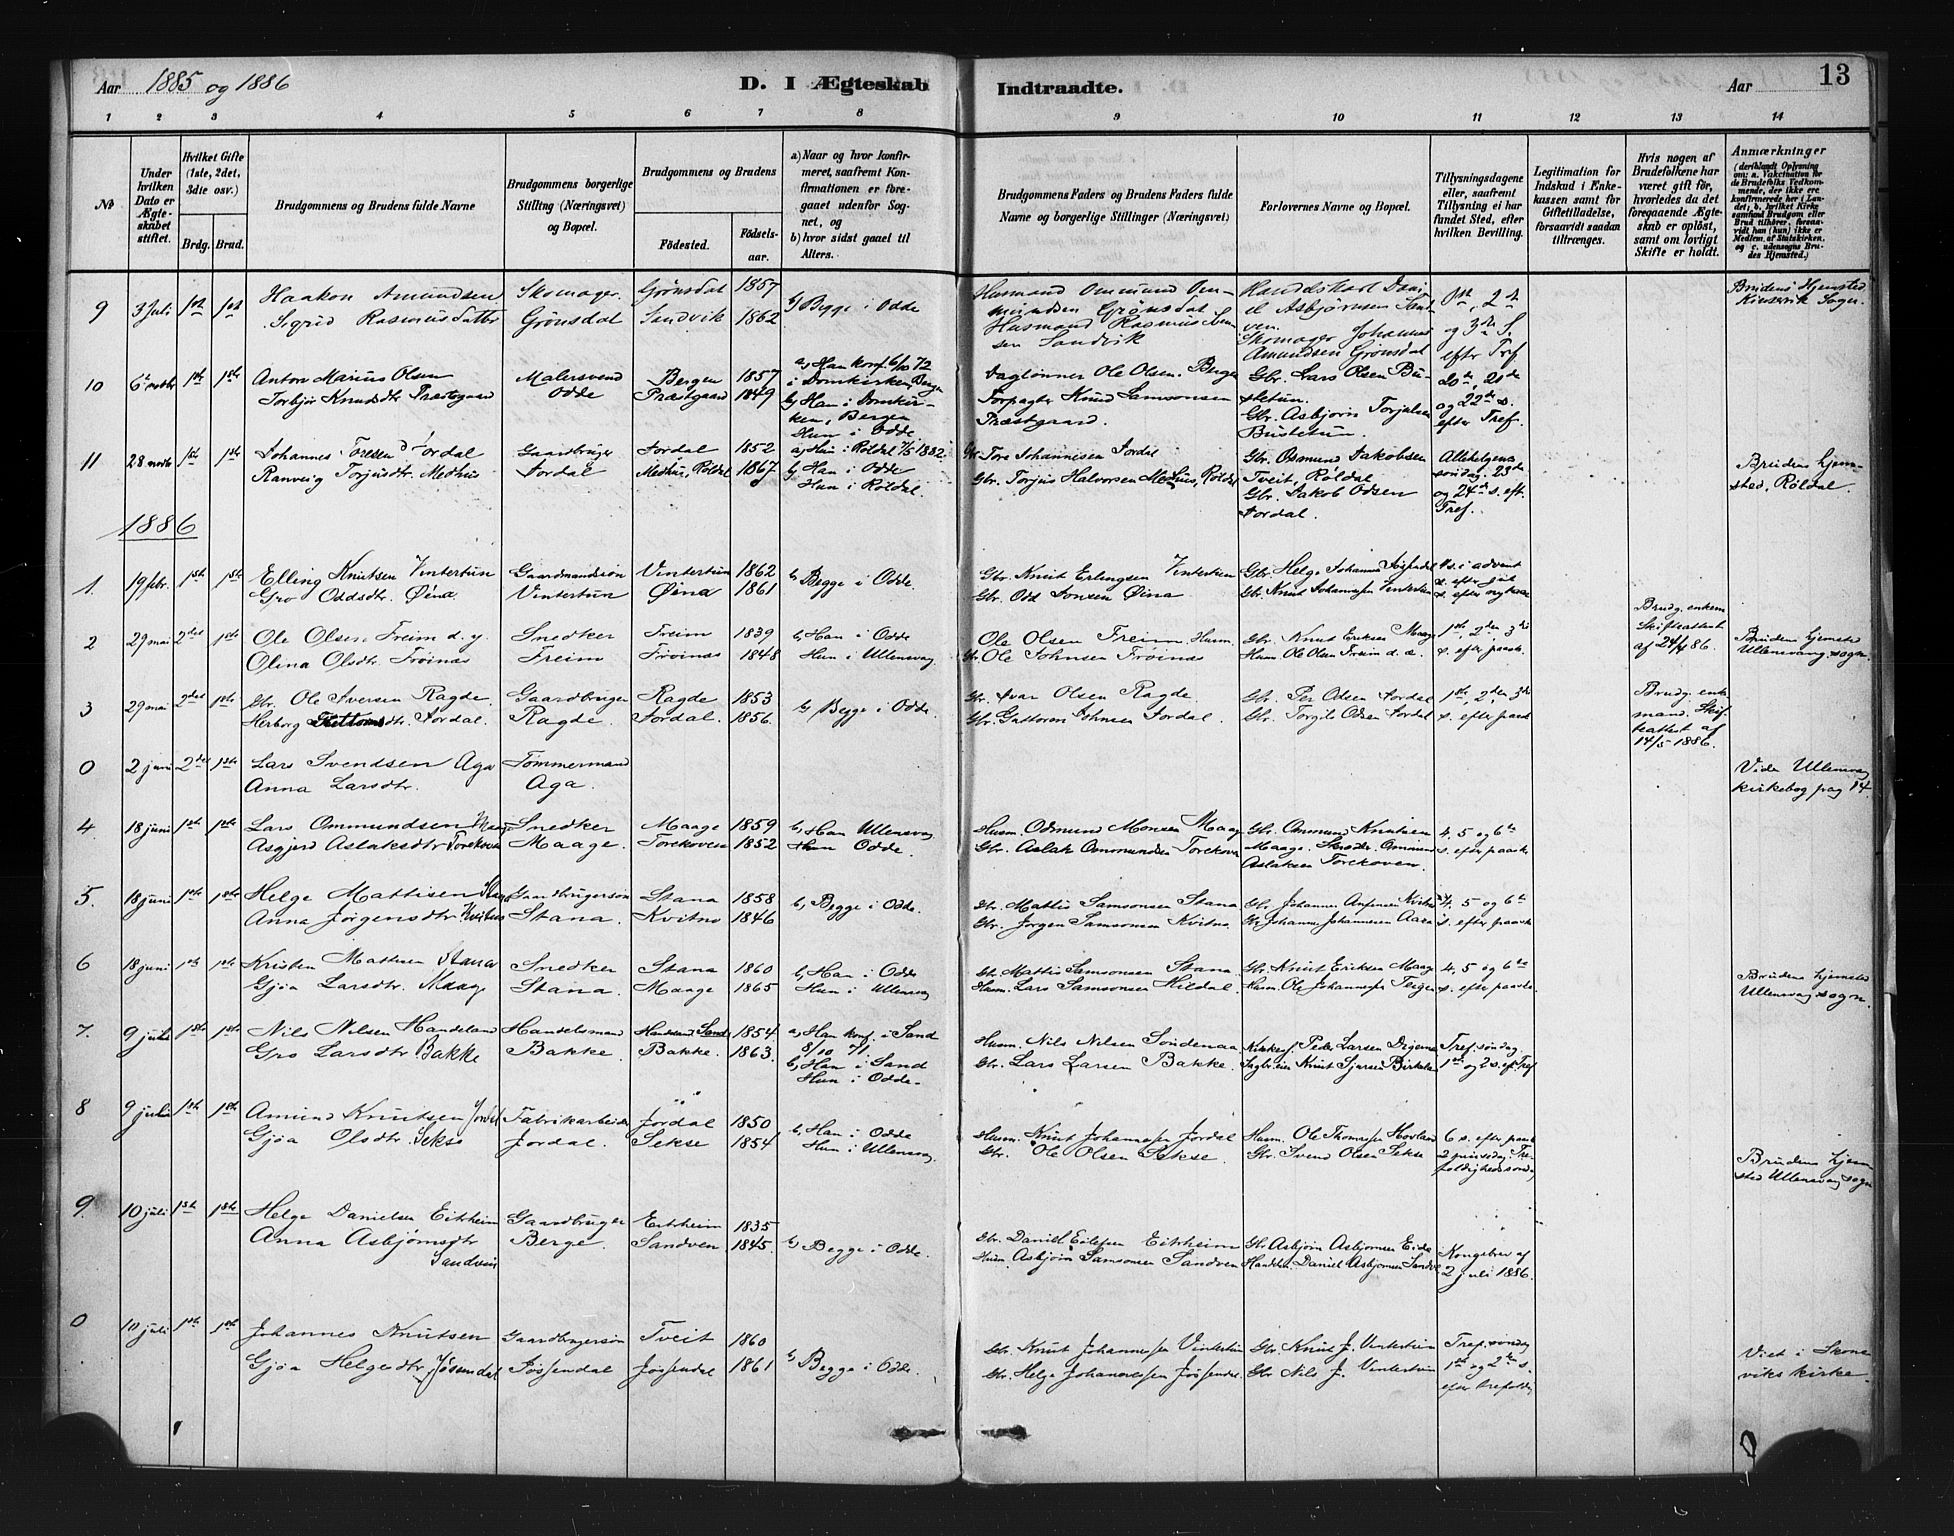 Aar 1885 og 1886 D. I Ægteskab Indtraadte. Aar 13
1 2 3 4 5 6 7 8 9 10 11 12 13 14
No
Under hvilken Dato er Ægteskabet stiftet.
Hvilket Gifte (1ste, 2det, 3die osv.)
Brdg. Brud.
Brudgommens og Brudens fulde Navne
Brudgommens borgerlige Stilling (Næringsvei) og Bopæl.
Brudgommens og Brudens
Fødested. Fødselsaar.
a) Naar og hvor konfirmeret, saafremt Konfirmationen er foregaaet udenfor Sognet, og
b) hvor sidst gaaet til Alters.
Brudgommens Faders og Brudens Faders fulde Navne og borgerlige Stillinger (Næringsvei)
Forlovernes Navne og Bopæl.
Tillysningsdagene eller, saafremt Tillysning ei har fundet Sted, efter hvilken Bevilling.
Legitimation for Indskud i Enkekassen samt for Giftetilladelse, forsaavidt saadan tiltrænges.
Hvis nogen af Brudefolkene har været gift før, hvorledes da det foregaaende Ægteskab er opløst, samt om lovligt Skifte er holdt.
Anmærkninger
(deriblandt Oplysning om: a. Vakcination for de Brudefolks Vedkommende, der ikke ere konfirmerede her i Landet; b. hvilket Kirkesamfund Brudgom eller Brud tilhører, forsaavidt han (hun) ikke er Medlem af Statskirken, og c. udensogns Brudes Hjemsted.)
9 3 Juli 1st 1st Haakon Amundsen Skomager. Grønsdal 1857
Sigrid Rasmusdatter Grønsdal Sandvik 1862 b) Begge i Odde
Husmand Ommund Ommundsen Grønsdal
Husmand Rasmus
Sandvik
Asbjørnsen
Skomager Johannes
Amundsen Grønsdal
og 3de S.
efter Tref.
Brudens Hjemsted
Kinservik Sogn
10 1ste 1ste Anton Marius Olsen Malersvend Bergen 1857
Torbjør Knudsdtr Præstegaard Odde Præstgaard 1849
a, Han konf. 6/10 72
i Domkirken, Bergen
b, Han i Domkirken, Bergen
Hun i Odde
Daglønner Ole Olsen. Bergen
Forpagter Knud Samsonsen
Præstgaard.
Gbr. Lars Olsen Bustetun.
Gbr. Asbjørn Torjulsen
Bustetun.
20de, 21de
og 22de s.
efter Tref.
11 28 novbr 1ste 1ste Johannes Toresen Jordal Gaardbruger Jordal 1852
Ranveig Torjusdtr. Medhus Jordal Medhus, Røldal 1867
a, Hun i Røldal 7/5 1882.
b, Han i Odde
Hun i Røldal.
Gbr Tore Johannesen Jordal
Gbr. Torjus Halvorsen Medhus, Røldal
Gbr. Osmund Jakobsen
Tveit, Røldal
Gbr. Jakob Odsen
Jordal.
Allehelgens
søndag, 23de
og 24de s. eft.
Tref.
Brudens hjemsted, Røldal.
1886
1. 19 febr. 1ste 1ste Elling Knutsen Vintertun Gaardmandssøn Vintertun 1862
Gro Oddsdtr. Øina Vintertun Øina 1861 b, Begge i Odde
Gbr. Knut Erlingsen Vintertun
Gbr. Odd Jonsen Øina
Gbr. Helge Johannes
Gbr. Knut Johannesen Vintertun
4 s. i advent
s. efter jul
s. efter nytaar
2 29 mai 2det 1ste Ole Olsen Freim d. y. Snedker Freim 1839
Olina Olsdtr. Frøinæs Freim Frøinæs 1848
b, Han i Odde
Hun i Ullensvag
Ole Olsen Freim. Husm.
Gbr. Ole Johnsen Frøinæs
Gbr. Knut Eriksen Maage
Husm. Ole Olsen Freim d. æ.
1ste, 2den, 3die
s. efter paaske
Brudg. enkem.
Skifteattest
af 24/4 86.
Brudens hjemsted
Ullensvang sogn.
3 29 mai 2det 1ste Gbr. Ole Iversen Ragde Gaardbruger Ragde 1853
Herborg Jordal. Ragde. Jordal. 1856. b, Begge i Odde.
Gbr. Ivar Olsen Ragde
Gbr. Guttorm Johnsen Jordal.
Gbr. Per Odsen Jordal
Gbr. Torgils Odsen Jordal
1ste, 2den, 3die
s. efter paaske
Brudg. enkmand. Skifteattest af
14/5 1886.
0 2 juni 2det 1ste Lars Svendsen Aga Tømmermand
Anna Larsdtr. Aga.
Vide Ullensvag
kirkebog pag 14.
4. 18 juni 1ste 1ste Lars Ommundsen Maage Snedker Maage 1859
Asgjerd Aslaksdtr Torekoven Maage. Torekoven 1852
b, Han Ullensvag
Hun Odde.
Husm. Odmund Monsen Maage
Gbr. Aslak Ommundsen Torekoven
Gbr. Ommund Knutsen
Maage. Skræder. Ommund
Aslaksen Torekoven.
4. 5 og 6te
s. efter paaske
5. 18 juni 1ste 1ste Helge Mattisen Stana Gaardbrugersøn Stana 1858
Anna Jørgensdtr Kvitnæs Stana. Kvitno 1846 b, Begge i Odde.
Gbr. Mattis Samsonsen Stana
Gbr. Jørgen Samsonsen Kvitno.
Gbr. Johannes
Gbr. Johannes Johannesen Aara
4. 5 og 6te
s. efter paaske
6 18 juni 1ste 1ste Kristen Mattisen Stana Snedker Stana 1860
Gjøa Larsdtr. Maage Stana. Maage 1865
b, Han i Odde
Hun i Ullensvag
Gbr. Mattis Samsonsen Stana
Husm. Lars Samsonsen Hildal.
Gbr. Knut Eriksen Maage
Husm. Ole Johannesen
4, 5 og 6te
s. efter paaske.
Brudens hjemsted
Ullensvang sogn.
7. 9 juli 1ste 1ste Nils Nilsen Handeland Handelsmand Handeland Sand 1854
Gro Larsdtr Bakke Bakke. Bakke. 1863.
a, Han konf. i Sand
8/10 71.
b, Han i Sand
Hun i Odde.
Husm. Nils Nilsen Søndenaa
Gbr. Lars Larsen Bakke.
Kirkesj. Peder Larsen Digernæs
Knut Sjursen Birkeland
Tref. søndag
1ste og 2 s. eft. Tref
8 9 juli 1ste 1ste Amund Knutsen Jordal Fabrikarbeider Jordal 1850
Gjøa Olsdtr. Sekse Jordal. Sekse 1854
b, Han i Odde
Hun i Ullensvag.
Husm. Knut Johannesen Jordal
Gbr. Ole Olsen Sekse.
Husm. Ole Thomassen Hovland
Gbr. Svend Olsen Sekse
6 s. efter paaske
2 pinsedag. Trefoldighedssøndag
Brudens hjemsted Ullensvag sogn
9. 10 juli 1ste 1ste Helge Danielsen Eitrheim Gaardbruger Eitrheim 1835
Anna Asbjørnsdtr Berge. Sandven 1845. b, Begge i Odde.
Sandvin
Gbr. Daniel Eilefsen Eitrheim
Husm. Asbjørn Samsonsen Sandven
Gbr. Asbjørn Asbjørnsen Eide
Handelsm. Daniel Asbjørnsen Sandven
Kongebrev af
2 juli 1886.
0 10 juli 1ste 1ste Johannes Knutsen Gaardbrugersøn Tveit 1860
Gjøa Helgesdtr. Jøsendal Jøssendal Jøssendal 1861 b, Begge i Odde.
Gbr. Knut Johannesen Vintertun
Gbr. Helge Johannesen Jøssendal.
Gbr. Knut J. Vintertun
Gbr. Nils J. Vintertun
Tref. søndag
1ste og 2den s.
efter trefoldig
Viet i Skonevikskirke.